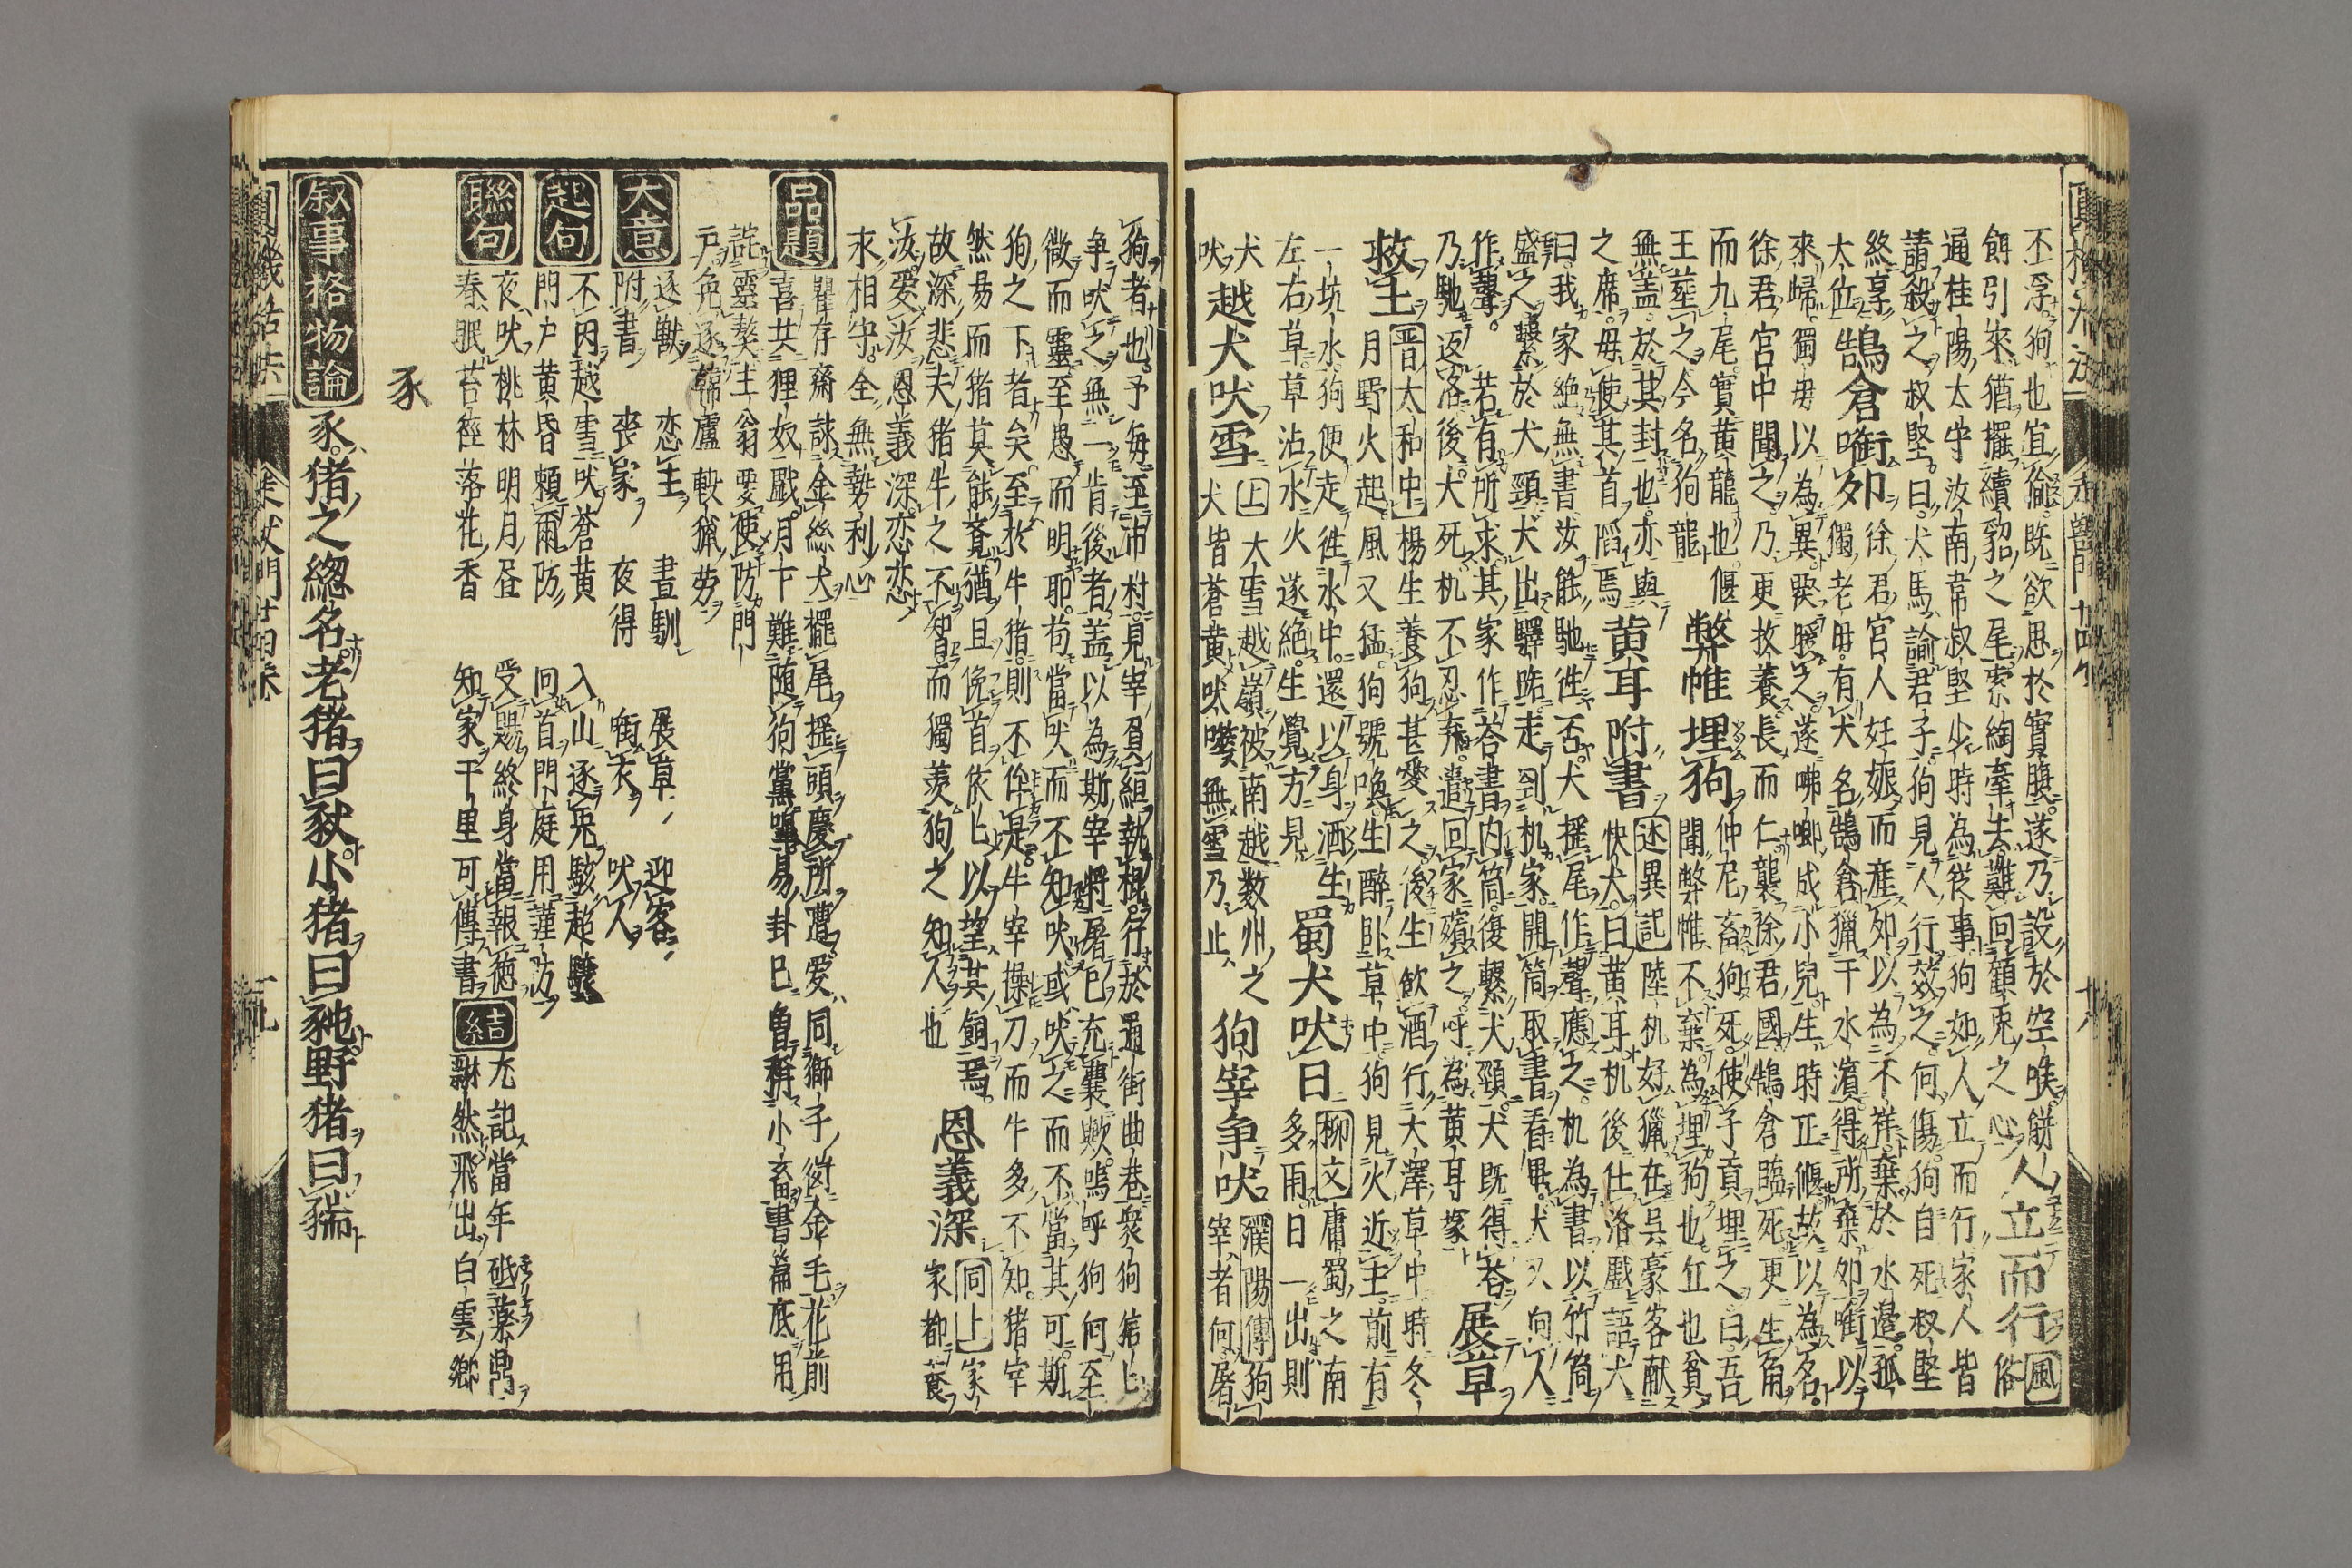 丕浮狗也宜偸既欲思於實腹遂乃設於空喉餅人立而行風俗
餌引來猶擺續貂之尾索綯牽去難回顧兎之心
通桂陽太守汝南常叔堅少時為從事狗如人立而行家人皆
請殺之叔堅曰犬馬諭君子狗見人行效之何傷狗自死叔堅
終享
太位鵠倉啣夘徐君宮人妊娠而産夘以為不祥棄於水邉孤
獨老母有犬名鵠倉獵于水濱得所棄夘啣以
來歸獨母以為異煖之遂啣成小兒生時正偃故以為名
徐君宮中聞之乃更收養長而仁襲徐君國鵠倉臨死更生角
而九尾實黄龍也偃
王塟之今名狗龍弊帷埋狗仲尼畜狗死使子貢埋之曰吾
聞弊帷不棄為埋狗也丘也貧
無盖於其封也亦與
之席毋使其首陷焉黄耳附書述異記陸机好獵在呉豪客献
快犬曰黄耳机後仕洛戯語犬
曰我家絶無書汝能馳徃否犬揺尾作聲應之机為書以竹筒
盛之繫於犬頸犬出驛路走到机家開筒取書看畢犬又向人
作聲若有所求其家作荅書内筒復繫犬頸犬既得荅
乃馳返洛後犬死机不忍棄遣回家殯之呼為黄耳塚展草
救主晋太和中楊生養狗甚愛之後生飲酒行大澤草中時冬
月野火起風又猛狗號喚生醉臥草中狗見火近主前有
一坑水狗便走徃水中還以身洒生
左右草草沾水火遂絶生覺方見蜀犬吠日柳文庸蜀之南
多雨日一出則
犬
吠越犬吠雪上大雪越嶺被南越数州之
犬皆蒼黄吠噬無雪乃止狗宰争吠濮陽傳狗
宰者何屠
狗者也予毎至市村見宰負絙執棍行於通街曲巷衆狗狺ヒ
争吠之無一肯後者盖以為斯宰將屠已充嚢歟嗚呼狗何至
微而靈至愚而明耶苟當吠而不知吠或吠之而不當其可斯
狗之下者矣至於牛猪則不伴是牛宰操刀而牛多不知猪宰
然昜而猪莫能竟猶且俛首依ヒ以望其飼焉恩義深同上家
故深悲夫猪牛之不知而獨羡狗之知人也家都養
汝愛汝恩義深恋恋
求相守全無勢利心
品題瞿存齋詠金絲犬擺尾揺頭慶所遭愛同獅子衒金毛花前
喜共狸奴戯月下難随狗黨嘷昜卦巳曽稱小畜書篇底用
詫靈獒主翁要使防門
戸兔逐韓盧較獵勞
大意逐獣恋主晝馴展草迎客
附書喪家夜得啣衣吠人
起句不因越雪吠蒼黄入山逐兎駭超驤
門戸黄昏頼爾防回首門庭用謹防
聯句夜吠桃林明月昼受賜終身當報徳結尤記當年砥薬鼎
春眠苔徑落花香知家千里可傳書翻然飛出白雲郷
豕
叙事格物論豕猪之緫名老猪曰豥小猪曰豝野猪曰豨